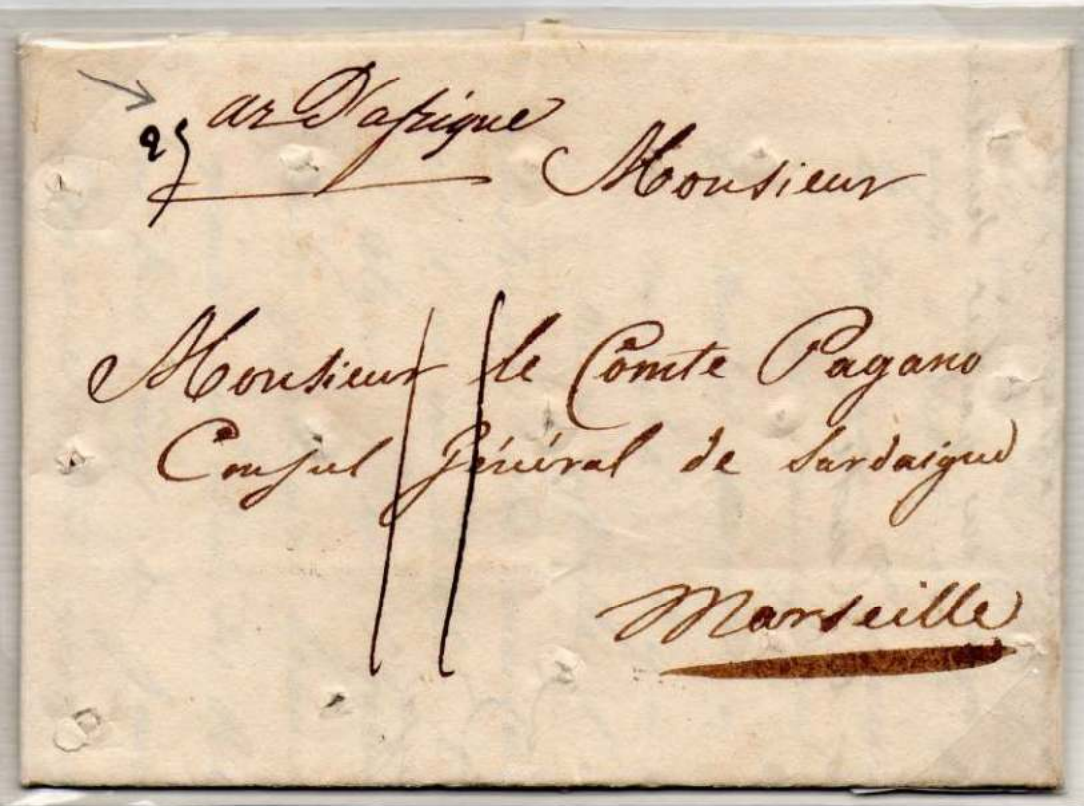 25
ar D'afrique
Monsieur
Monsieur le Comte Pagano
Consul Général de Sardaigne
Marseille
11